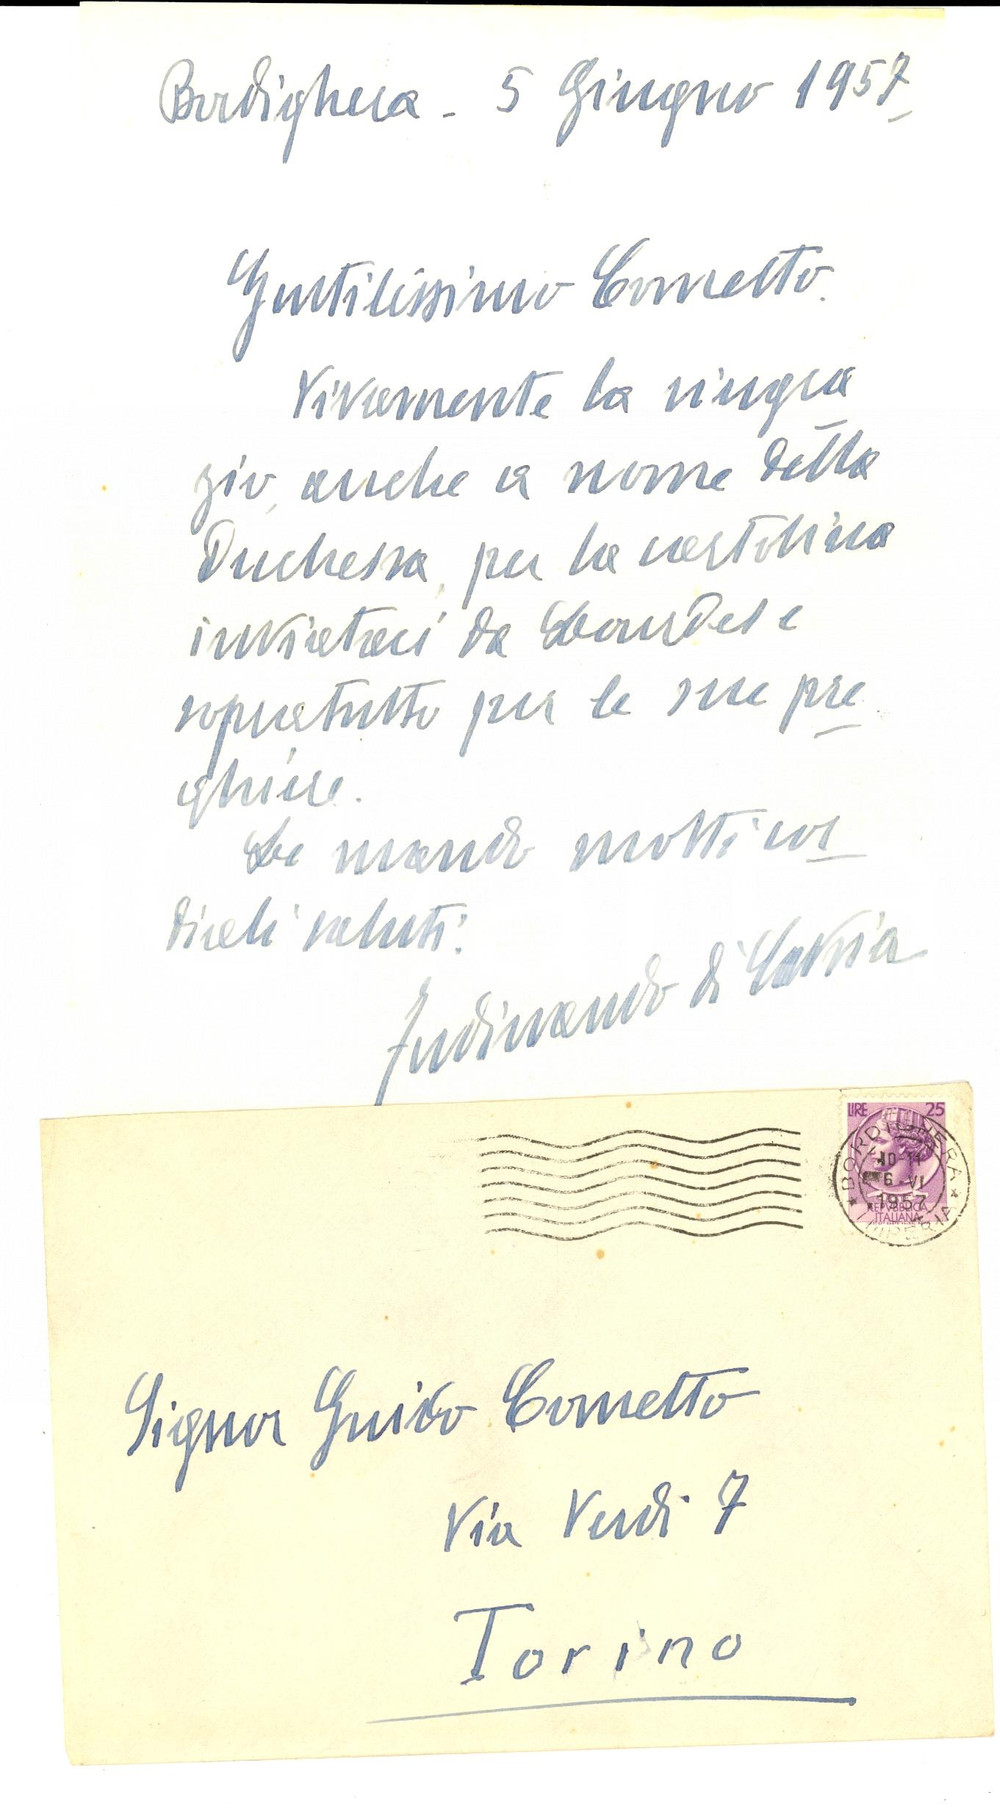 Bordighera - 5 Giugno 1957
Gentilissimo Cometto.
Vivamente la ringra
zio, anche a nome della
Duchessa, per la cartolina
inviataci da Lourdes e
sopratutto per le sue pre
ghiere.
Le mando molti cor
diali saluti.
Ferdinando di Savoia
LIRE 25
BORDIGHERA
10-11
6 VI
1957
IMPERIA
REPUBBLICA
ITALIANA
Signor Guido Cometto
Via Verdi 7
Torino